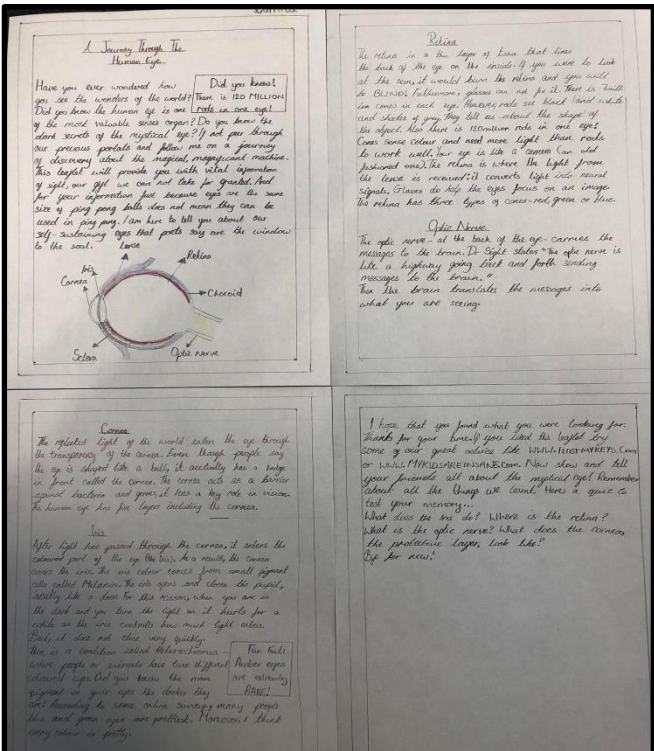 A Journey Through The
Human Eye
Have you ever wondered how
you see the wonders of the world?
Did you know the human eye is one
of the most valuable senses organ? Do you know the
dark secrets of the mystical eye? If not peer through
our precious portals and follow me on a journey
of discovery about the magical, magnificand machine.
This leaflet will provide you with vital information
of sight, our gift we can not take for granted. And
for your information just because eyes are the same
size of ping pong balls does not mean they can be
used in ping pong. I am here to tell you about our
self-sustaining eyes that poets say are the window
to the soul.
Did you know!
There is 120 MILLION
rods in one eye!
Lense
Retina
Iris
Cornea
Choroid
Sclera
Optic Nerve
Retina
The retina is a thin layer of tissue that lines
the back of the eye on the inside. If you were to look
at the sun, it would burn the retina and you will
be BLIND! Futhermore, glasses can not fix it. There is 7 mill-
ion cones in each eye. However, rods see black and white
and shades of grey, they tell us about the shape of
the object. Also there is 120 million rods in one eye!
Cones sense colour and need more light than rods
to work well. Your eye is like a camera (an old
fashioned one). The retina is where the light from
the lense is received: it converts light into neural
signals. Glasses do help the eyes focus on an image
The retina has three types of cones- red, green or blue.
Optic Nerve
The optic nerve - at the back of the eye- carries the
messages to the brain. Dr Sight states "The optic nerve is
like a highway going back and forth sending
messages to the brain."
Then the brain translates the messages into
what you are seeing.
Cornea
The reflected light of the world enters the eye through
the transparency of the cornea. Even though people say
the eye is shaped like a ball, it acctually has a bulge
in front called the cornea. The cornea acts as a barrier
against bacteria and germs, it has a key role in vision.
The human eye has five layers including the cornea.
Iris
After light has passed through the cornea, it enters the
coloured part of the eye (the iris). As a result, the cornea
covers the iris. The iris colour comes from small pigment
cells called Melanin. The iris opens and closes the pupil,
exactly like a door. For this reason, when you are in
the dark and you turn the light on it hurts for a
while as the iris controlls how much light enters.
But, it does not close very quickly.
There is a condition called Heterochromia -
where people or animals have two different
coloured eyes. Did you know the more
pigment in your eyes the darker they
are! According to some online surveys, many people
blue and green eyes are prettiest. Moreover, I think
every colour is pretty.
Fun Fact!
Amber eyes
are extremely
RARE!
I hope that you found what you were looking for.
Thanks for your time. If you liked this leaflet try
some of our great advice like WWW.ILOSTMYKEYS.Com
or WWW.MYKIDSAREINSANE.Com. Now show and tell
your friends all about the mystical eye! Remember
about all the things we learnt. Here's a quiz to
test your memory...
What does the iris do? Where is the retina?
What is the optic nerve? What does the cornea,
the protective layer, look like?
Bye for now!